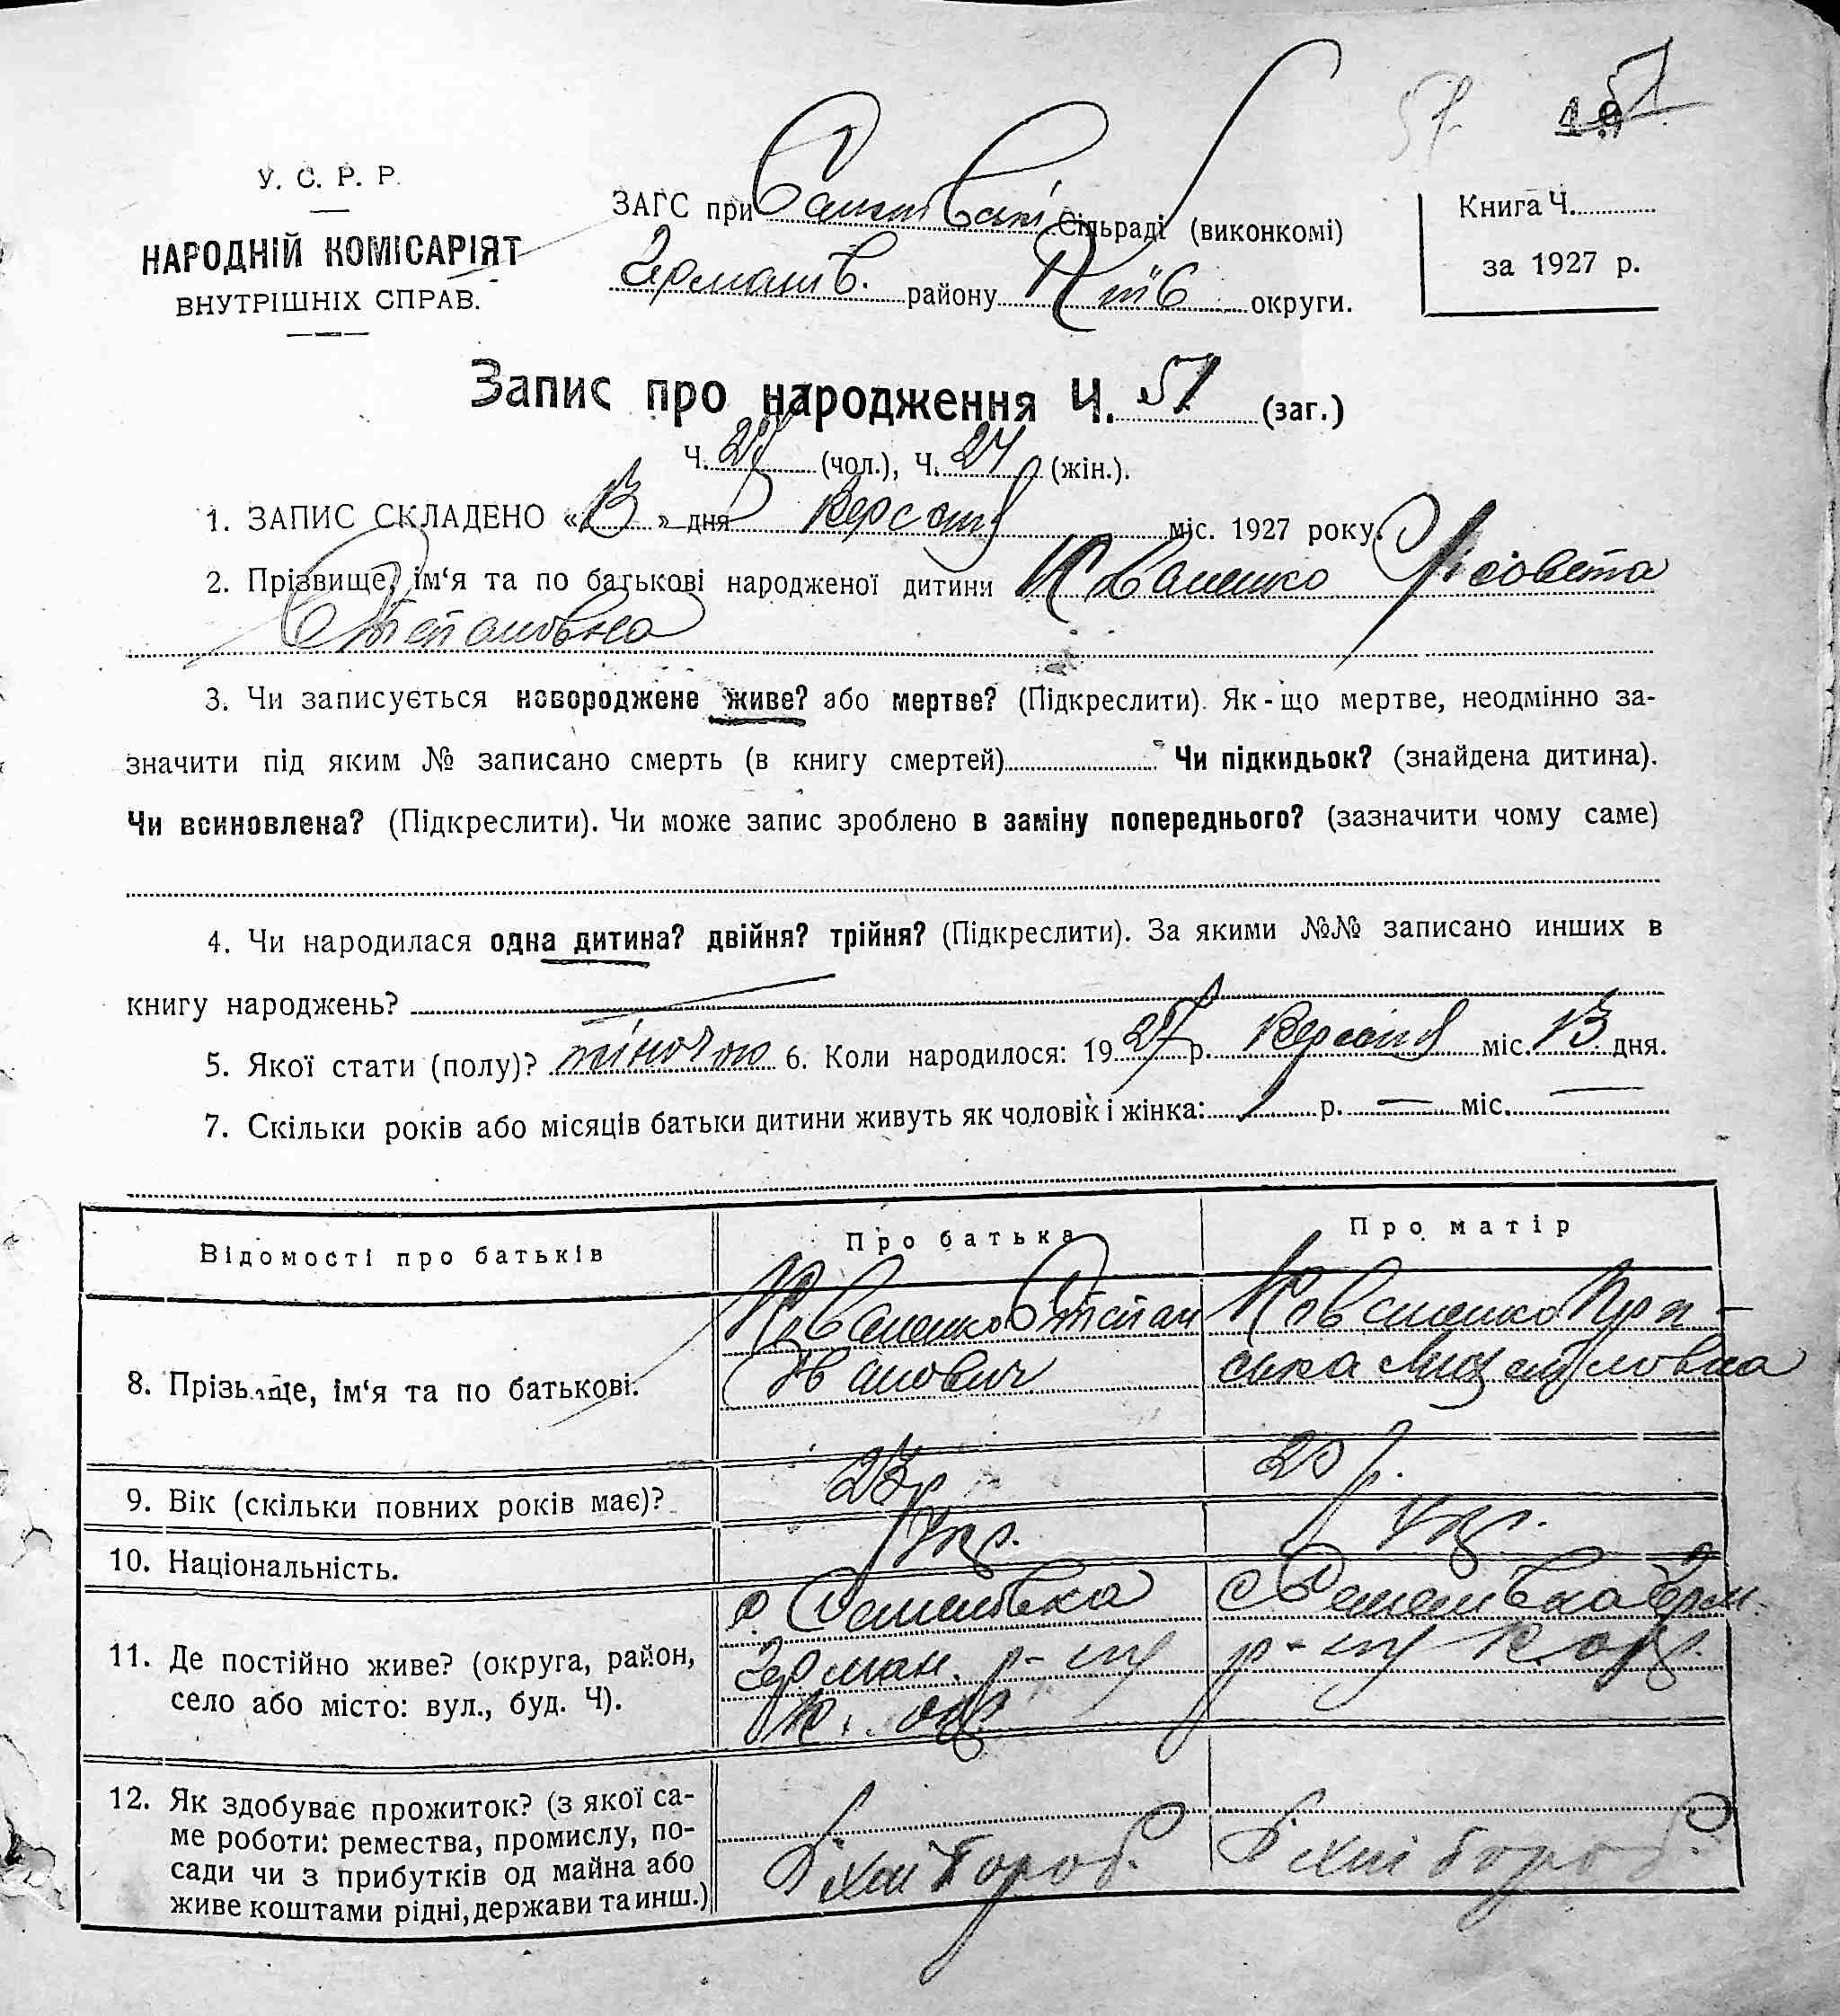 57
57
У. С. Р. Р.
НАРОДНІЙ КОМІСАРІЯТ
ВНУТРІШНІХ СПРАВ.
ЗАГС при Сільраді (виконкомі)
Германів. району Київ округи.
Книга Ч.
за 1927 р.
Запис про народження Ч. 51 (заг.)
Ч. 27 (чол.), Ч. 24 (жін.).
1. ЗАПИС СКЛАДЕНО «13» дня Версня міс. 1927 року.
2. Прізвище, ім‘я та по батькові народженої дитини Коваленко
Степановна
3. Чи записується новороджене живе? або мертве? (Підкреслити). Як-що мертве, неодмінно за-
значити під яким № записано смерть (в книгу смертей) Чи підкидьок? (знайдена дитина).
Чи всиновлена? (Підкреслити). Чи може запис зроблено в заміну попереднього? (зазначити чому саме)
4. Чи народилася одна дитина? двійня? трійня? (Підкреслити). За якими №№ записано инших в
книгу народжень?
5. Якої стати (полу)? жіночою 6. Коли народилося: 1927 р. Версня міс. 13 дня.
7. Скільки років або місяців батьки дитини живуть як чоловік і жінка: 1 р. — міс. —
Відомості про батьків
Про батька
Про матір
8. Прізвище, ім‘я та по батькові.
Коваленко Степан
Іванович
Коваленко
9. Вік (скільки повних років має)?
23 р
20 р.
10. Національність.
Укр.
Укр.
11. Де постійно живе? (округа, район,
село або місто: вул., буд. Ч).
с.
Герман. р-ну
К. окр.
с. Герм.
р-ну К. окр.
12. Як здобуває прожиток? (з якої са-
ме роботи: ремества, промислу, по-
сади чи з прибутків од майна або
живе коштами рідні, держави та инш.)
хлібороб.
хлібороб.